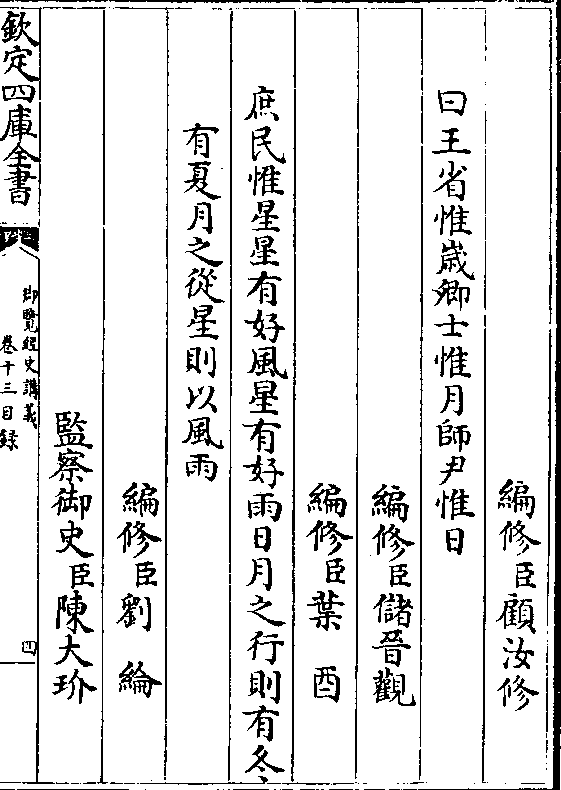 編修臣顧汝修
曰王省惟歲卿士惟月師尹惟日
編修臣儲晉觀
編修臣葉酉
庶民惟星星有好風星有好雨日月之行則有冬
有夏月之從星則以風雨
編修臣劉綸
監察御史臣陳大玠
欽定四庫全書
御覽經史講義
卷十三目録
四